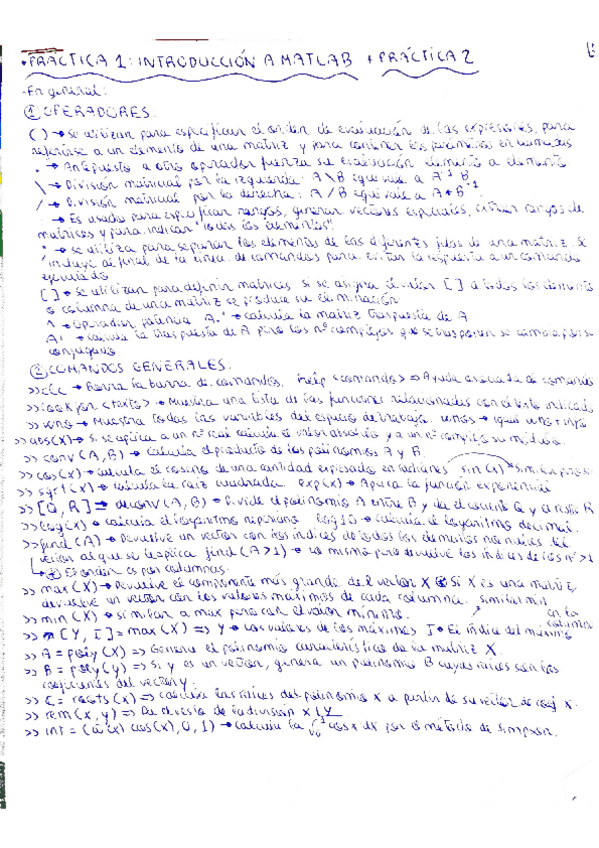 • PRÁCTICA 1: INTRODUCCIÓN A MATLAB + PRÁCTICA 2
-En general:
① OPERADORES.
( ) → Se utilizan para especificar el orden de evaluación de las expresiones, para
referirse a un elemento de una matriz y para contener los parámetros en llamadas
. → Antepuesto a otro operador fuerza su evaluación elemento a elemento
\ → División matricial por la izquierda: A\B equivale a A⁻¹ B
/ → División matricial por la derecha: A/B equivale a A*B⁻¹
: → Es usado para especificar rangos, generar vectores espaciales, extraer rangos de
matrices y para indicar "todos los elementos".
→ se utiliza para separar los elementos de las diferentes filas de una matriz. Se
incluye al final de la línea de comandos para evitar la respuesta a un comando
ejecutado
[ ] → Se utilizan para definir matrices, si se asigna el valor [ ] a todos los elementos
o columna de una matriz se produce su eliminación
^ → Operador potencia A.' → calcula la matriz traspuesta de A
A' → calcula la traspuesta de A pero los nº complejos que se trasponen se cambia por su
conjugado
② COMANDOS GENERALES.
>> clc → Borra la barra de comandos. help <comando> → Ayuda avanzada al comando
>> look for <texto> → Muestra una lista de las funciones relacionadas con el texto indicado
>> who → Muestra todas las variables del espacio de trabajo. whos → igual who + info
>> abs(x) → Si se aplica a un nº real calcula el valor absoluto y a un nº complejo su módulo.
>> conv (A,B) → Calcula el producto de los polinomios A y B.
>> cos(x) → Calcula el coseno de una cantidad expresada en radianes sin(x)
>> sqrt(x) → calcula la raíz cuadrada. exp(x) → Aplica la función exponencial
>> [Q, R] = deconv (A, B) → Divide el polinomio A entre B y da el cociente Q y el resto R
>> log(x) → calcula el logaritmo neperiano log10 → calcula el logaritmo decimal.
>> find (A) → Devuelve un vector con los índices de todos los elementos no nulos del
vector al que se le aplica find (A>1) → Lo mismo pero devuelve los índices de los nº >1
↳ El orden es por columnas.
>> max (X) → Devuelve el componente más grande del vector X Si X es una matriz,
devuelve un vector con los valores máximos de cada columna. Similar min
>> min (X) → similar a max pero con el valor mínimo.
>> [Y, I] = max (X) => Y → Los valores de los máximos I → El índice del máximo en la columna
>> A = poly (X) => Genera el polinomio característico de la matriz X.
>> B = poly (y) => Si y es un vector, genera un polinomio B cuyas raíces son los
coeficientes del vector y.
>> C = roots (x) => calcula las raíces del polinomio x a partir de su vector de coef x.
>> rem (x, y) => Da el resto de la división x / y
>> int = cos(x), 0, 1) → calcula la ∫ cos x dx por el método de Simpson.